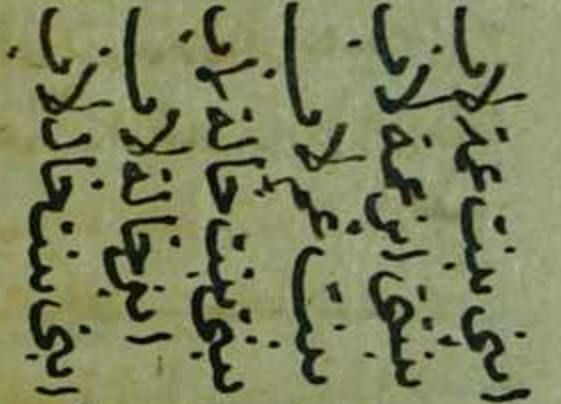 ابنى بنت عمة لاب
بنتى ابن عمة لاب
بنت عم لاب
بنتى بنت خالة لاب
ابنى خالة لاب
ابنى بنت خال لاب